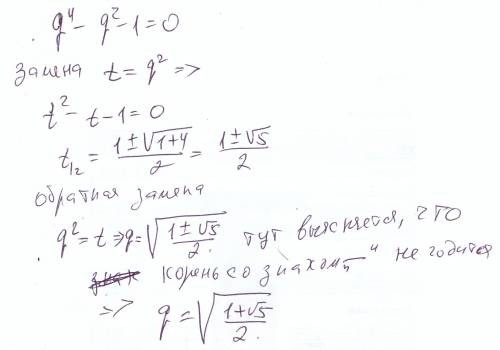 q⁴ - q² - 1 = 0
замена t = q² =>
t² - t - 1 = 0
t₁₂ = (1 ± √(1+4))/2 = (1 ± √5)/2
обратная замена
q² = t => q = √((1 ± √5)/2) тут выясняется, что
корень со знаком "-" не годится
=> q = √((1+√5)/2)